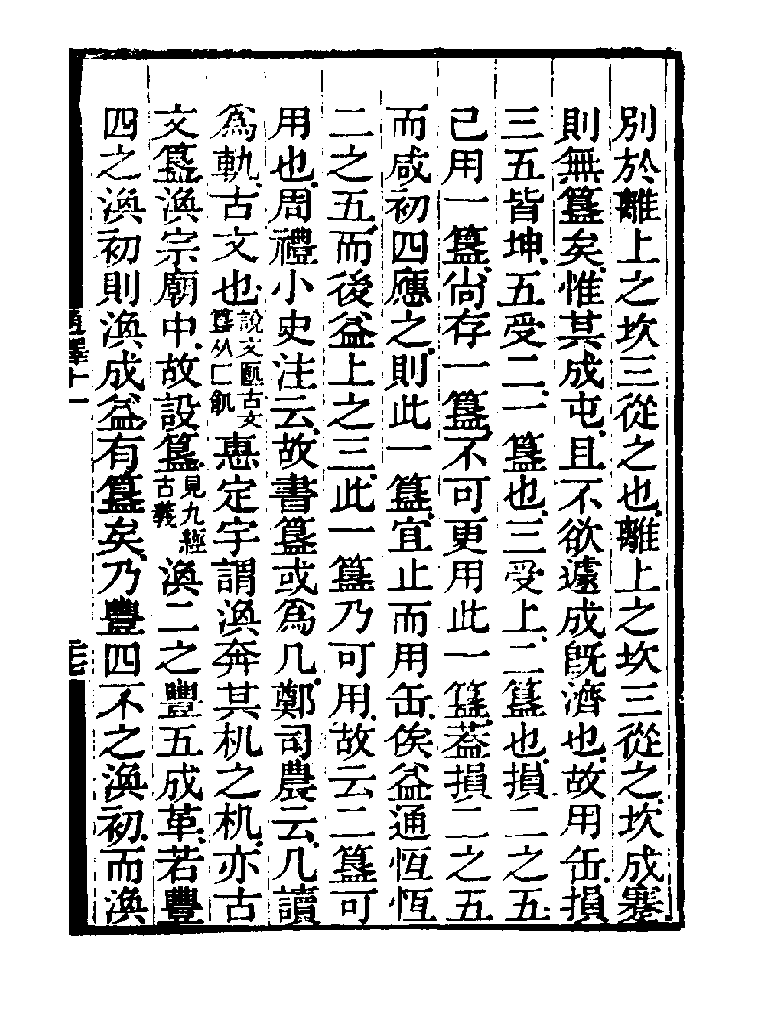 別於離上之坎三從之也離上之坎三從之坎成蹇
則無簋矣惟其成屯且不欲遽成旣濟也故用缶損
三五皆坤五受二一簋也三受上二簋也損二之五
已用一簋尙存一簋不可更用此一簋葢損二之五
而咸初四應之則此一簋宜止而用缶俟益通恆恆
二之五而後益上之三此一簋乃可用故云二簋可
用也周禮小史注云故書簋或爲几鄭司農云几讀
爲軌古文也說文匭古文簋从匚飢惠定宇謂渙奔其机之机亦古
文簋渙宗廟中故設簋見九經古義渙二之豐五成革若豐
四之渙初則渙成益有簋矣乃豐四不之渙初而渙
通釋十一